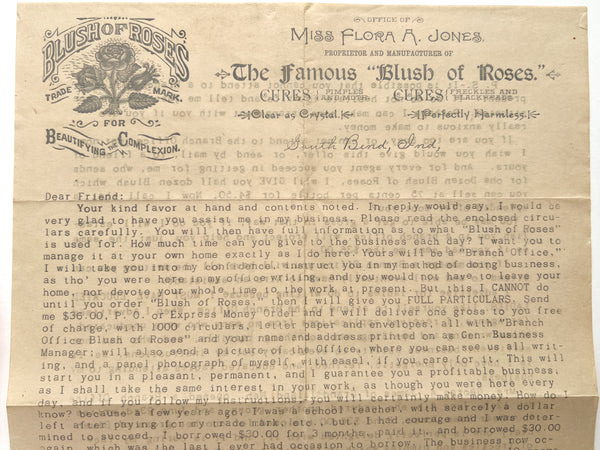 BLUSH OF ROSES
TRADE MARK.
FOR
BEAUTIFYING THE COMPLEXION.
OFFICE OF
MISS FLORA A. JONES.
PROPRIETOR AND MANUFACTURER OF
The Famous "Blush of Roses."
CURES PIMPLES AND MOTH CURES FRECKLES AND BLACKHEADS
Clear as Crystal. Perfectly Harmless.
South Bend, Ind,
Dear Friend:
Your kind favor at hand and contents noted. In reply would say, I would be
very glad to have you assist me in my business. Please read the enclosed circu-
lars carefully. You will then have full information as to what "Blush of Roses"
is used for. How much time can you give to the business each day? I want you to
manage it at your own home exactly as I do here. Yours will be a "Branch Office,"
I will take you into my confidence, instruct you in my method of doing business,
as tho' you were here in my office writing, and you would not have to leave your
home, nor devote your whole time to the work at present. But this I CANNOT do
until you order "Blush of Roses," then I will give you FULL PARTICULARS. Send
me $36.00, P. O. or Express Money Order and I will deliver one gross to you free
of charge, with 1000 circulars, letter paper and envelopes, all with "Branch
Office Blush of Roses" and your name and address printed on as Gen. Business
Manager; will also send a picture of the Office, where you can see us all writ-
ing, and a panel photograph of myself, with easel, if you care for it. This will
start you in a pleasant, permanent, and I guarantee you a profitable business,
as I shall take the same interest in your work, as though you were here every
day, and if you follow my instructions, you will certainly make money. How do I
know? because a few years ago, I was a school teacher, with scarcely a dollar
left after paying for my trade mark, etc., but, I had courage and I was deter-
mined to succeed. I borrowed $30.00 for 3 months, paid it, and borrowed $30.00
again, which was the last I ever had occasion to borrow. The business now oc-